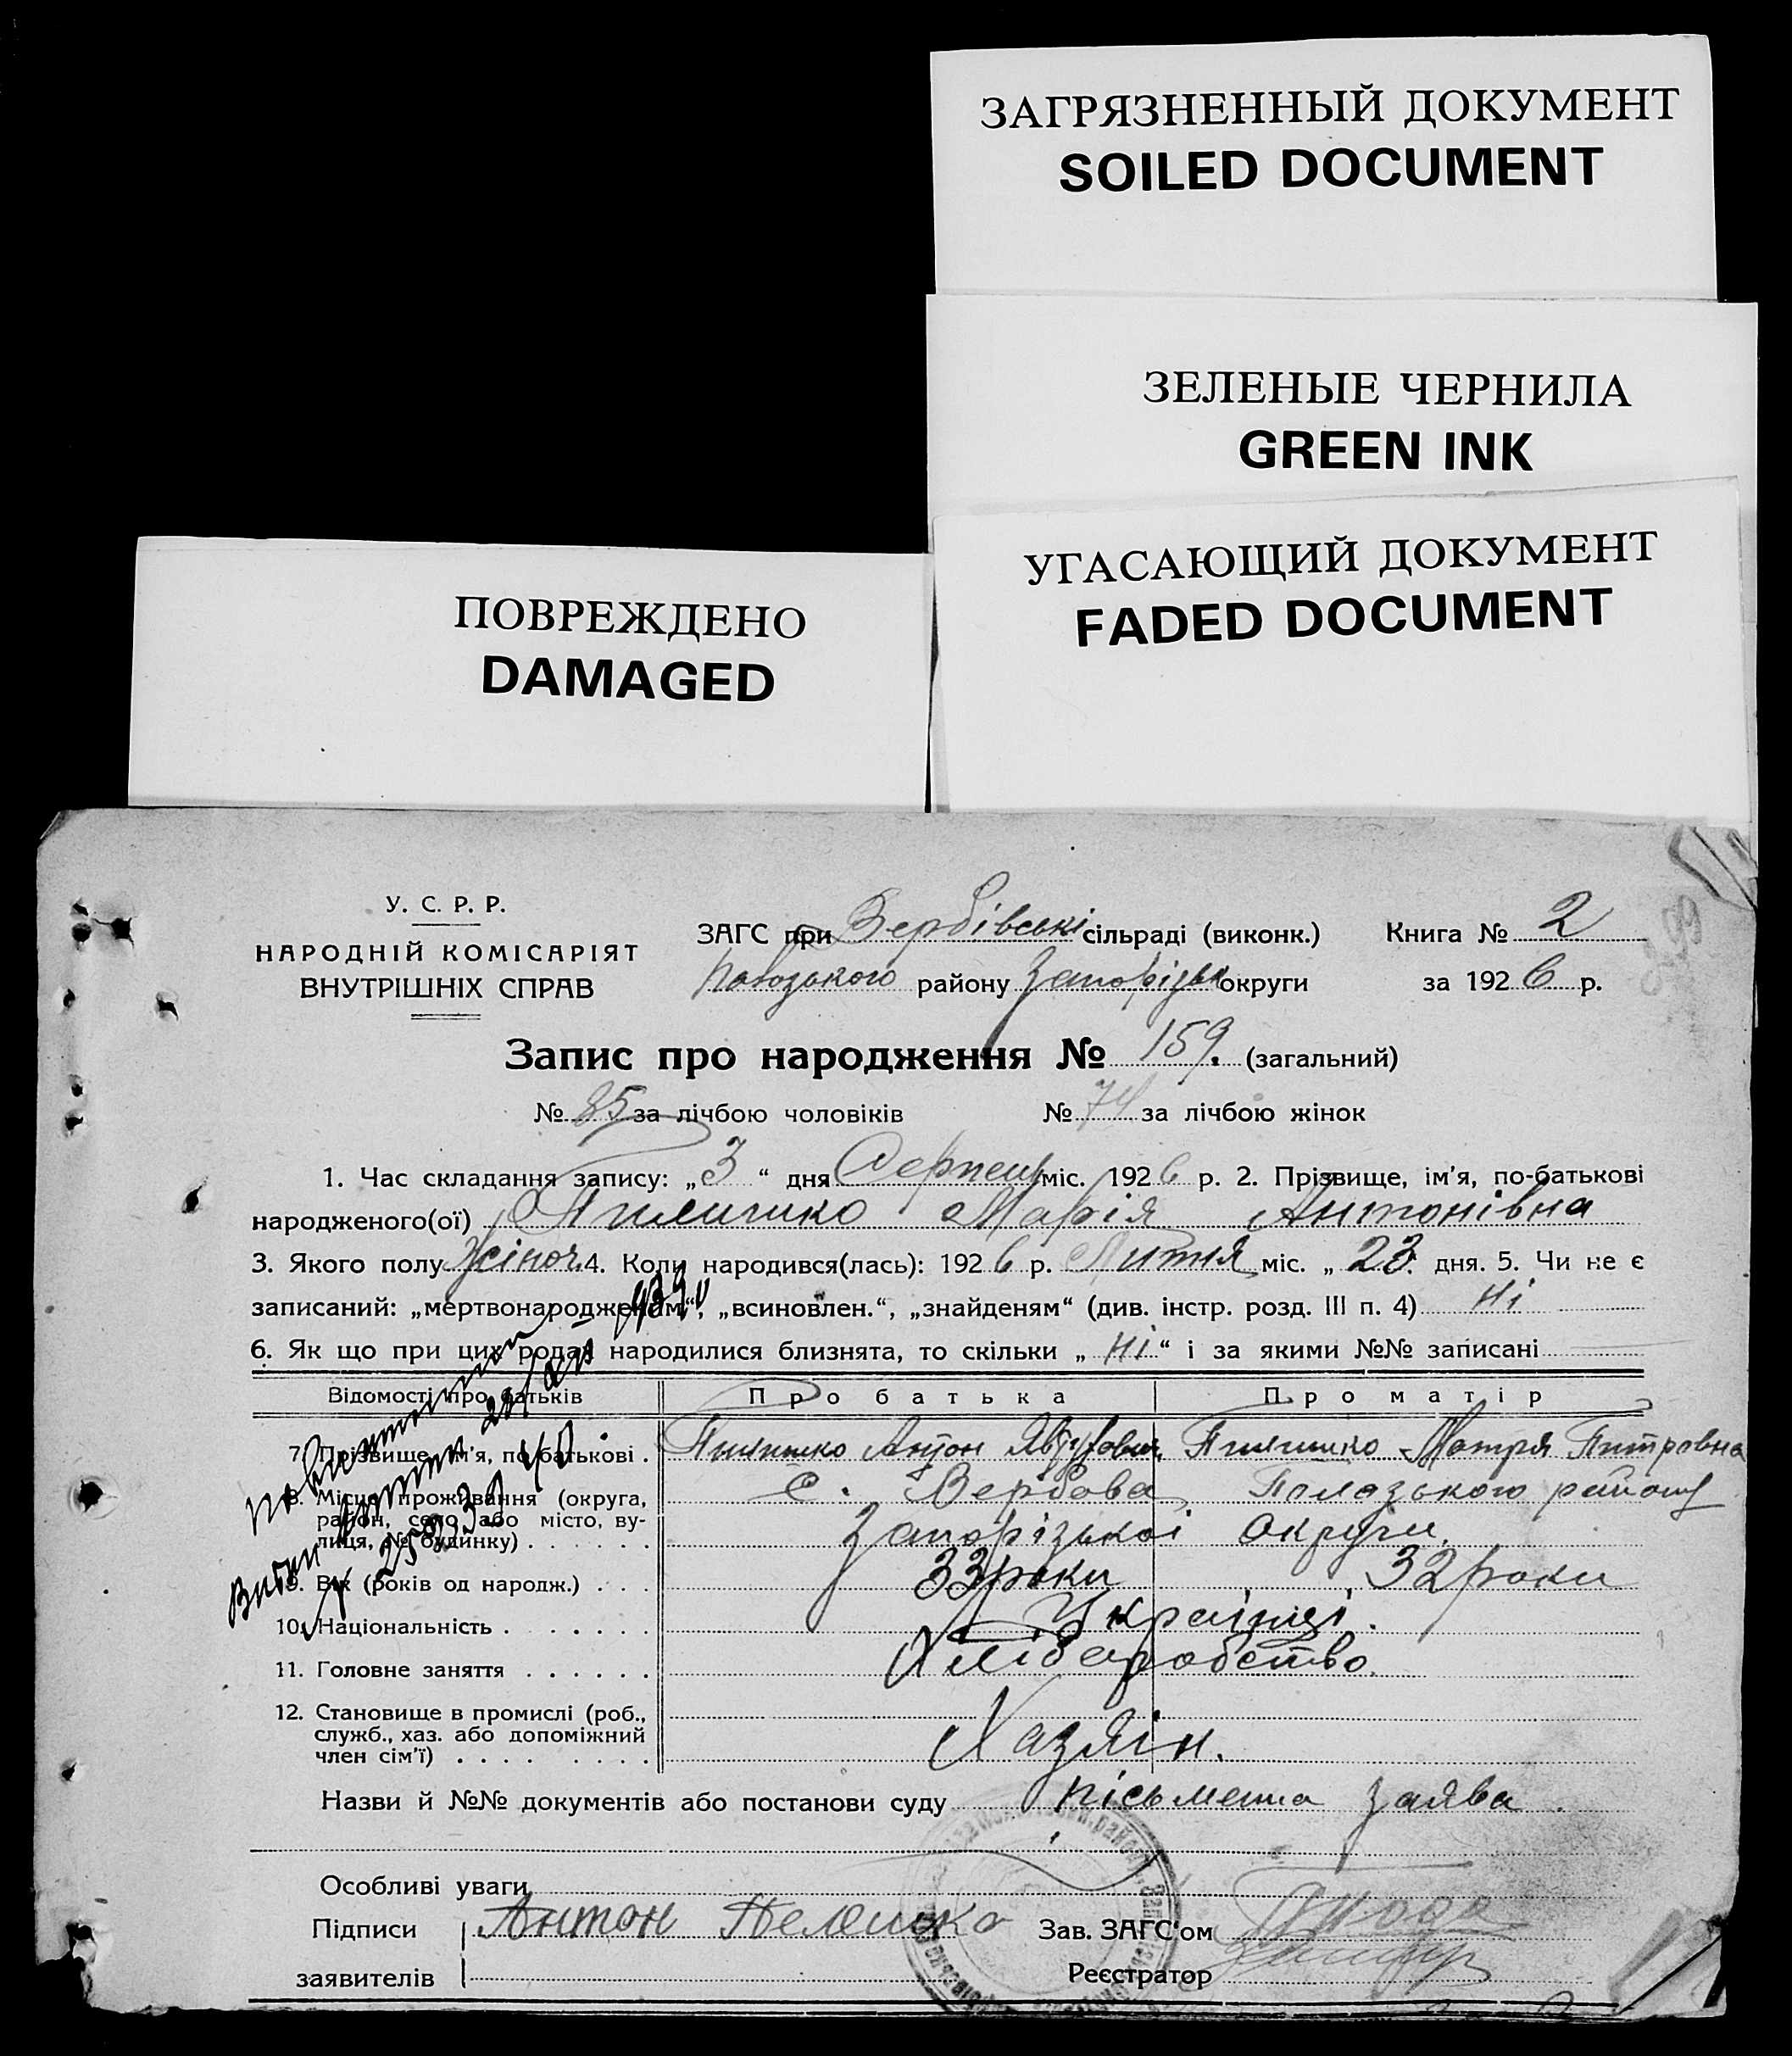 ЗАГРЯЗНЕННЫЙ ДОКУМЕНТ
SOILED DOCUMENT
ЗЕЛЕНЫЕ ЧЕРНИЛА
GREEN INK
УГАСАЮЩИЙ ДОКУМЕНТ
FADED DOCUMENT
ПОВРЕЖДЕНО
DAMAGED
У. С. Р. Р.
НАРОДНІЙ КОМІСАРІЯТ
ВНУТРІШНІХ СПРАВ
ЗАГС при Вербівські сільраді (виконк.) Книга № 2
району Запорізьк округи за 1926 р.
Запис про народження № 159. (загальний)
№ 85 за лічбою чоловіків № 74 за лічбою жінок
1. Час складання запису: „3“ дня Серпень міс. 1926 р. 2. Прізвище, ім'я, по-батькові
народженого(ої) Марія Антонівна
3. Якого полу Жіноч. 4. Коли народився(лась): 1926 р. Липня міс. „23. дня. 5. Чи не є
записаний: „мертвонародженям“, „всиновлен.“, „знайденям“ (див. інстр. розд. III п. 4) Ні
6. Як що при цих родах народилися близнята, то скільки „Ні“ і за якими №№ записані
Відомості про батьків Про батька Про матір
7. Прізвище, ім'я, по батькові . Антон Мотря Питровна
8. Місце проживання (округа, район, село або місто, вулиця, № будинку) . . . . . . с. Вербова, Пологзького району
Запорізької Округи.
9. Вік (років од народж.) . . . 33 роки 32 роки
10. Національність . . . . . . . Українці.
11. Головне заняття . . . . . . Хліборобство
12. Становище в промислі (роб.,
служб., хаз. або допоміжний
член сім'ї) . . . . . . . . . Хазяін.
Назви й №№ документів або постанови суду пісьменна заява.
Особливі уваги
Підписи Антон Зав. ЗАГС'ом
заявителів Реєстратор